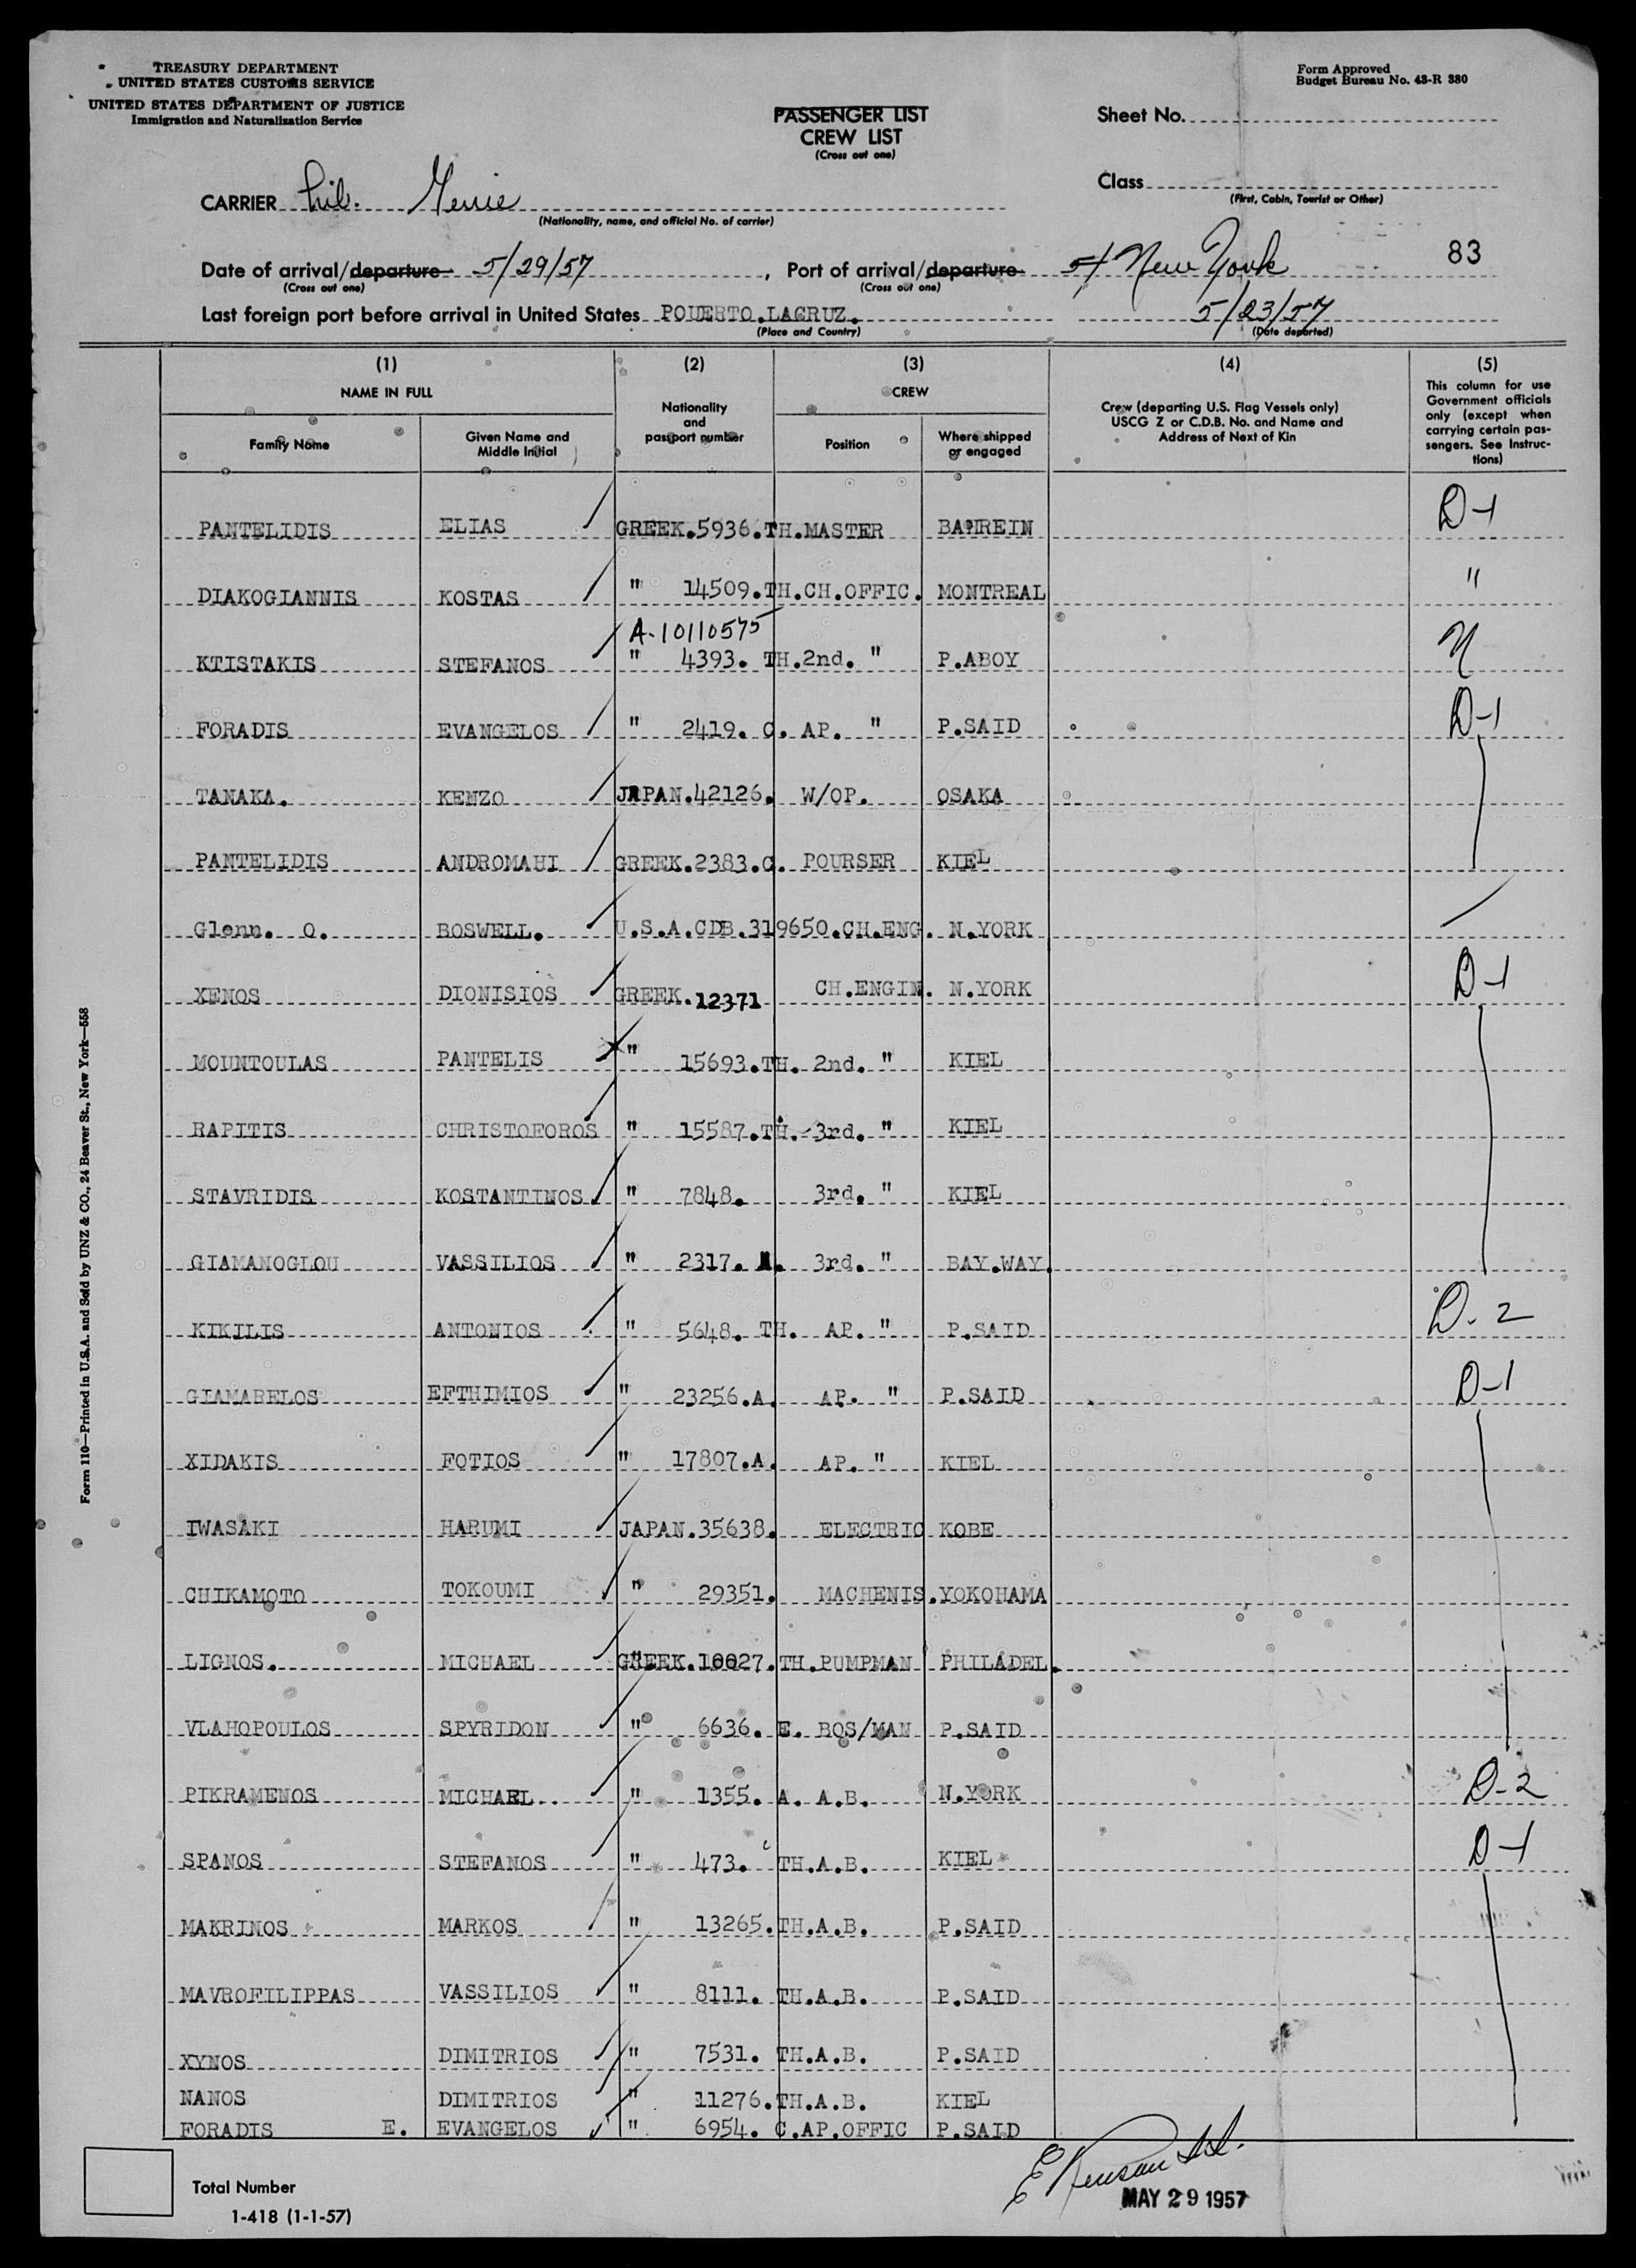 TREASURY DEPARTMENT
UNITED STATES CUSTOMS SERVICE
UNITED STATES DEPARTMENT OF JUSTICE
Immigration and Naturalization Service
Form Approved
Budget Bureau No. 43-R 380
PASSENGER LIST
CREW LIST
(Cross out one)
Sheet No.
Class
(First, Cabin, Tourist or Other)
CARRIER Lib.
(Nationality, name, and official No. of carrier)
83
Date of arrival/departure 5/29/57, Port of arrival/departure New York
(Cross out one) (Cross out one)
Last foreign port before arrival in United States POUERTO.LACRUZ. 5/23/57
(Place and Country) (Date departed)
(1) (2) (3) (4) (5)
NAME IN FULL Nationality and passport number CREW Crew (departing U.S. Flag Vessels only) USCG Z or C.D.B. No. and Name and Address of Next of Kin This column for use Government officials only (except when carrying certain passengers. See Instructions)
Family Name Given Name and Middle Initial Position Where shipped or engaged
PANTELIDIS ELIAS GREEK.5936.TH.MASTER BAHREIN D-1
DIAKOGIANNIS KOSTAS " 14509.TH.CH.OFFIC. MONTREAL "
A-10110575
KTISTAKIS STEFANOS " 4393. TH.2nd. " P.ABOY
FORADIS EVANGELOS " 2419. C. AP. " P.SAID D-1
TANAKA. KENZO JAPAN.42126. W/OP. OSAKA
PANTELIDIS ANDROMAHI GREEK.2383.C. POURSER KIEL
Glenn. O. BOSWELL. U.S.A.CDB.319650.CH.ENG. N.YORK
XENOS DIONISIOS GREEK.12371 CH.ENGIN. N.YORK D-1
MOUNTOULAS PANTELIS " 15693.TH. 2nd. " KIEL
RAPITIS CHRISTOFOROS " 15587.TH. 3rd. " KIEL
STAVRIDIS KOSTANTINOS " 7848. 3rd. " KIEL
GIAMANOGLOU VASSILIOS " 2317. 3rd. " BAY.WAY.
KIKILIS ANTONIOS " 5648. TH. AP. " P.SAID D-2
GIAMARELOS EFTHIMIOS " 23256.A. AP. " P.SAID D-1
XIDAKIS FOTIOS " 17807.A. AP. " KIEL
IWASAKI HARUMI JAPAN.35638. ELECTRIC KOBE
CHIKAMOTO TOKOUMI " 29351. MACHENIS.YOKOHAMA
LIGNOS. MICHAEL GREEK.10027.TH.PUMPMAN PHILADEL.
VLAHOPOULOS SPYRIDON " 6636. E. BOS/MAN P.SAID
PIKRAMENOS MICHAEL. " 1355. A. A.B. N.YORK D-2
SPANOS STEFANOS " 473. TH.A.B. KIEL D-1
MAKRINOS MARKOS " 13265.TH.A.B. P.SAID
MAVROFILIPPAS VASSILIOS " 8111. TH.A.B. P.SAID
XYNOS DIMITRIOS " 7531. TH.A.B. P.SAID
NANOS DIMITRIOS " 11276.TH.A.B. KIEL
FORADIS E. EVANGELOS " 6954. C.AP.OFFIC P.SAID
Total Number
MAY 29 1957
1-418 (1-1-57)
Form 110—Printed in U.S.A. and Sold by UNZ & CO., 24 Beaver St., New York—558